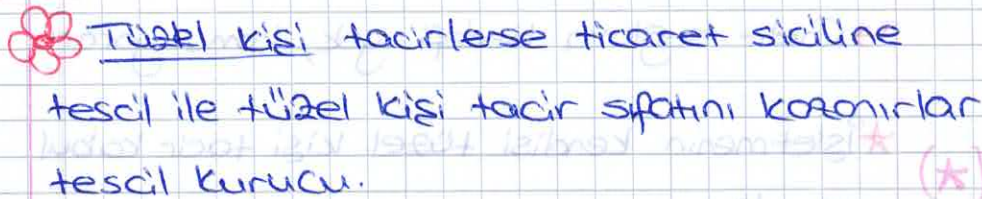 Tüzel kişi tacirlerse ticaret siciline
tescil ile tüzel kişi tacir sıfatını kazanırlar
tescil kurucu.